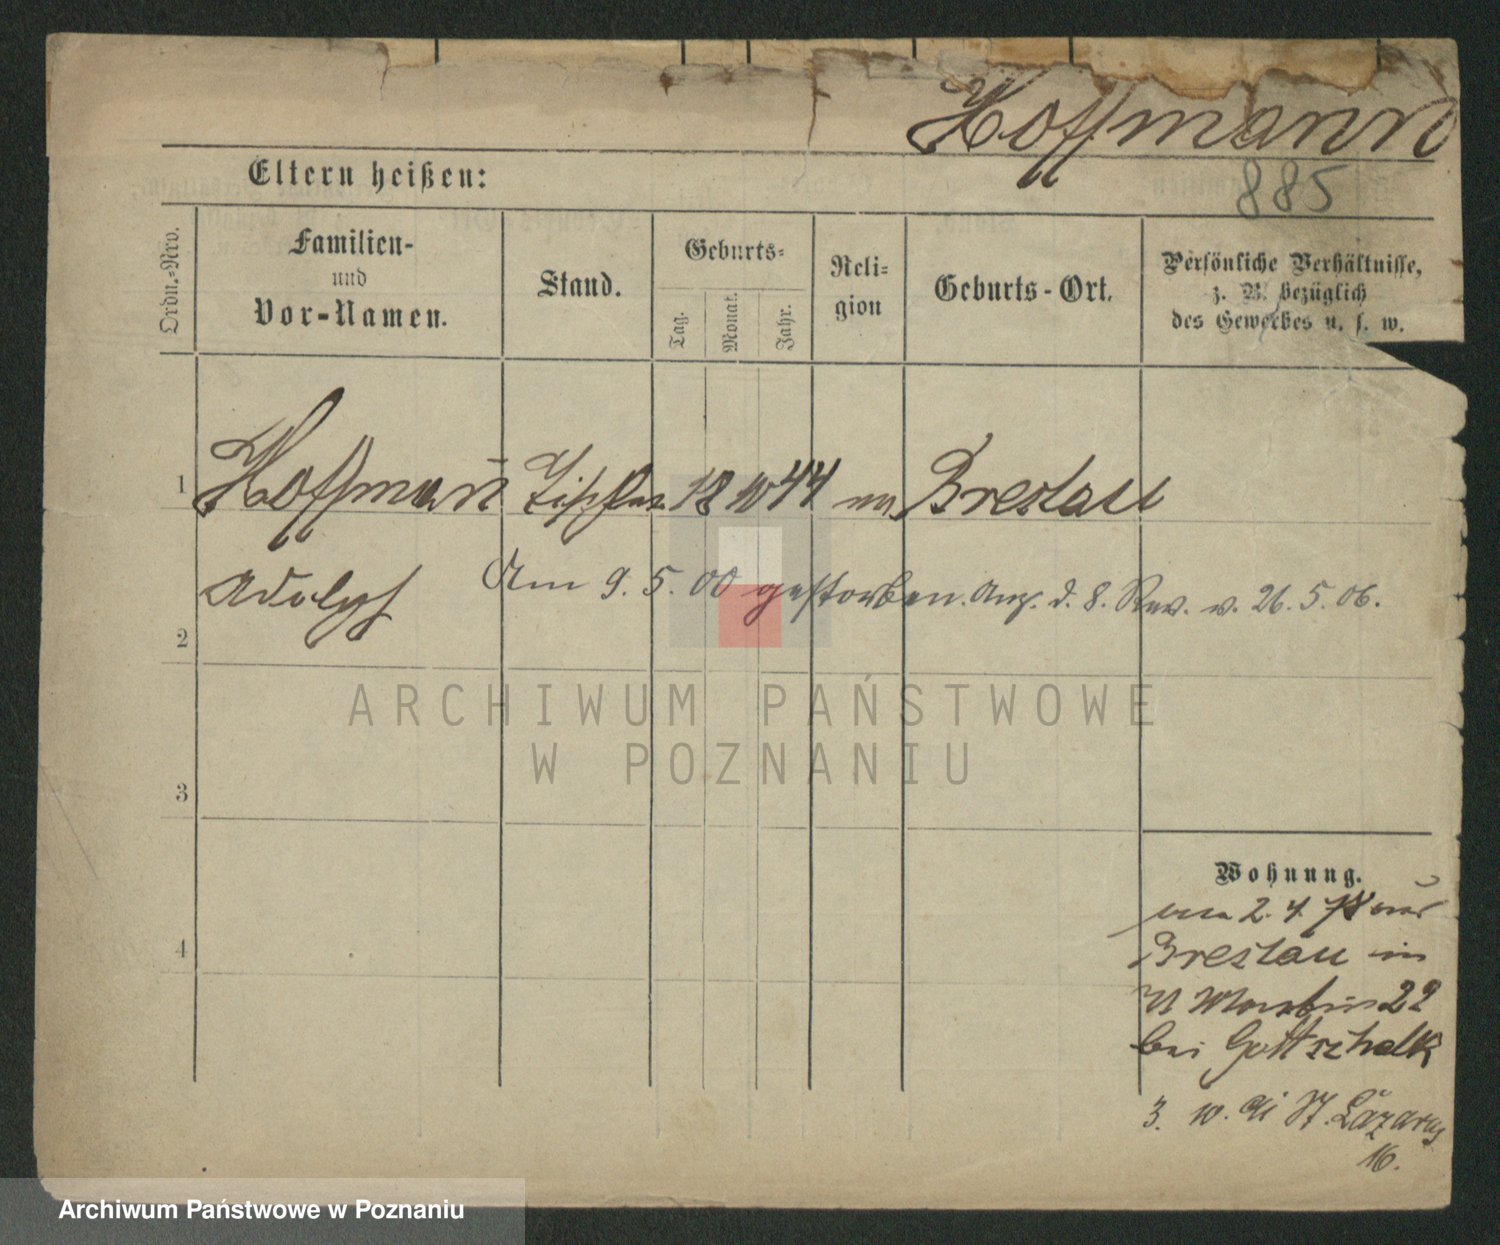 Hoffmann
885
Eltern heißen:
Ordn.-Nro.
Familien-
und
Vor-Namen.
Stand.
Geburts-
Tag.
Monat.
Jahr.
Reli-
gion
Geburts-Ort.
Persönliche Verhältnisse,
z. B. bezüglich
des Gewerbes u. s. w.
1 Hoffman̄ 18 10 44 Breslau
Adolph
Am 9. 5. 00 gestorben. Anz. d. 8. Rev. v. 26. 5. 06.
2
ARCHIWUM PAŃSTWOWE
W POZNANIU
3
Wohnung.
2. 4. 78
Breslau in
22
bei Gottschalk
4
3. 10. St. Lazarus
16.
Archiwum Państwowe w Poznaniu